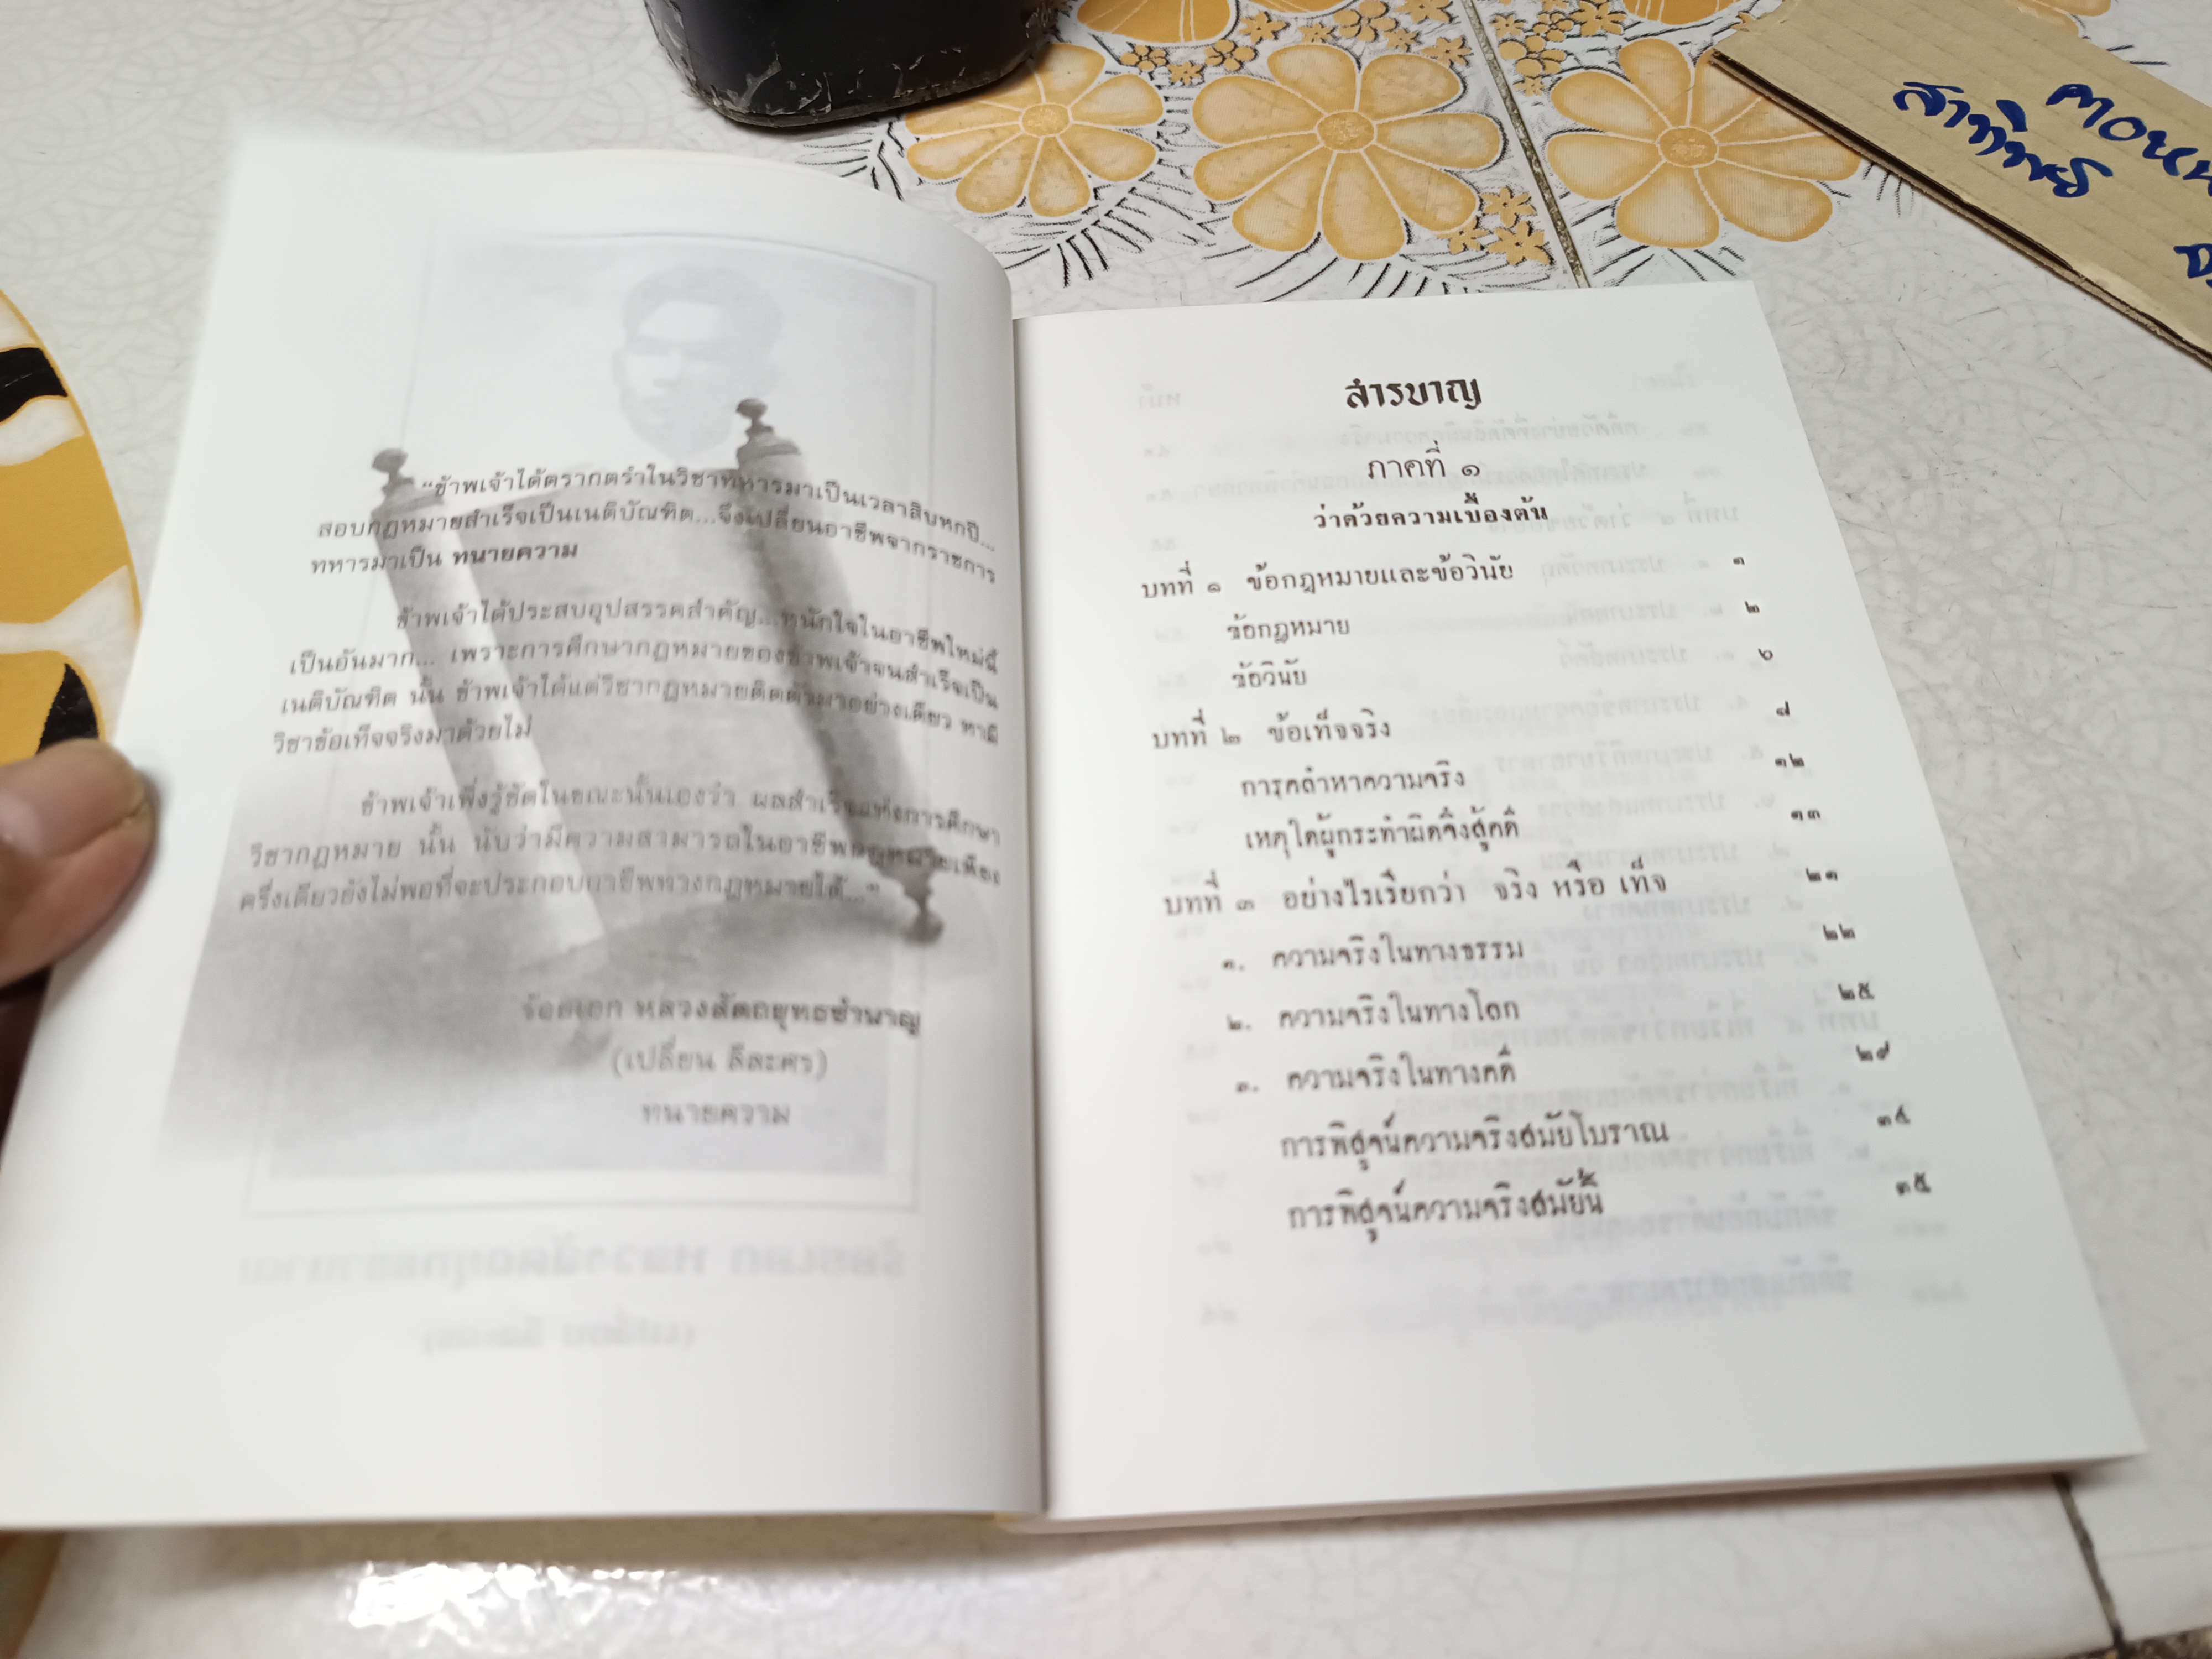 “ข้าพเจ้าได้ตรากตรำในวิชาทหารมาเป็นเวลาสิบหกปี...
สอบกฎหมายสำเร็จเป็นเนติบัณฑิต...จึงเปลี่ยนอาชีพจากราชการ
ทหารมาเป็น ทนายความ
ข้าพเจ้าได้ประสบอุปสรรคสำคัญ...หนักใจในอาชีพใหม่นี้
เป็นอันมาก... เพราะการศึกษากฎหมายของข้าพเจ้าจนสำเร็จเป็น
เนติบัณฑิต นั้น ข้าพเจ้าได้แต่วิชากฎหมายติดตัวมาอย่างเดียว หามี
วิชาข้อเท็จจริงมาด้วยไม่
ข้าพเจ้าเพิ่งรู้ชัดในขณะนั้นเองว่า ผลสำเร็จแห่งการศึกษา
วิชากฎหมาย นั้น นับว่ามีความสามารถในอาชีพกฎหมายเพียง
ครึ่งเดียวยังไม่พอที่จะประกอบอาชีพทางกฎหมายได้...”
ร้อยเอก หลวงสัดถยุทธชำนาญ
(เปลี่ยน ลีละศร)
ทนายความ
สารบาญ
ภาคที่ ๑
ว่าด้วยความเบื้องต้น
บทที่ ๑ ข้อกฎหมายและข้อวินัย ๑
ข้อกฎหมาย ๒
ข้อวินัย ๖
บทที่ ๒ ข้อเท็จจริง ๘
การคลำหาความจริง ๑๒
เหตุใดผู้กระทำผิดจึงสู้คดี ๑๓
บทที่ ๓ อย่างไรเรียกว่า จริง หรือ เท็จ ๒๑
๑. ความจริงในทางธรรม ๒๒
๒. ความจริงในทางโลก ๒๕
๓. ความจริงในทางคดี ๒๙
การพิสูจน์ความจริงสมัยโบราณ ๓๔
การพิสูจน์ความจริงสมัยนี้ ๓๕
สาทิพย์